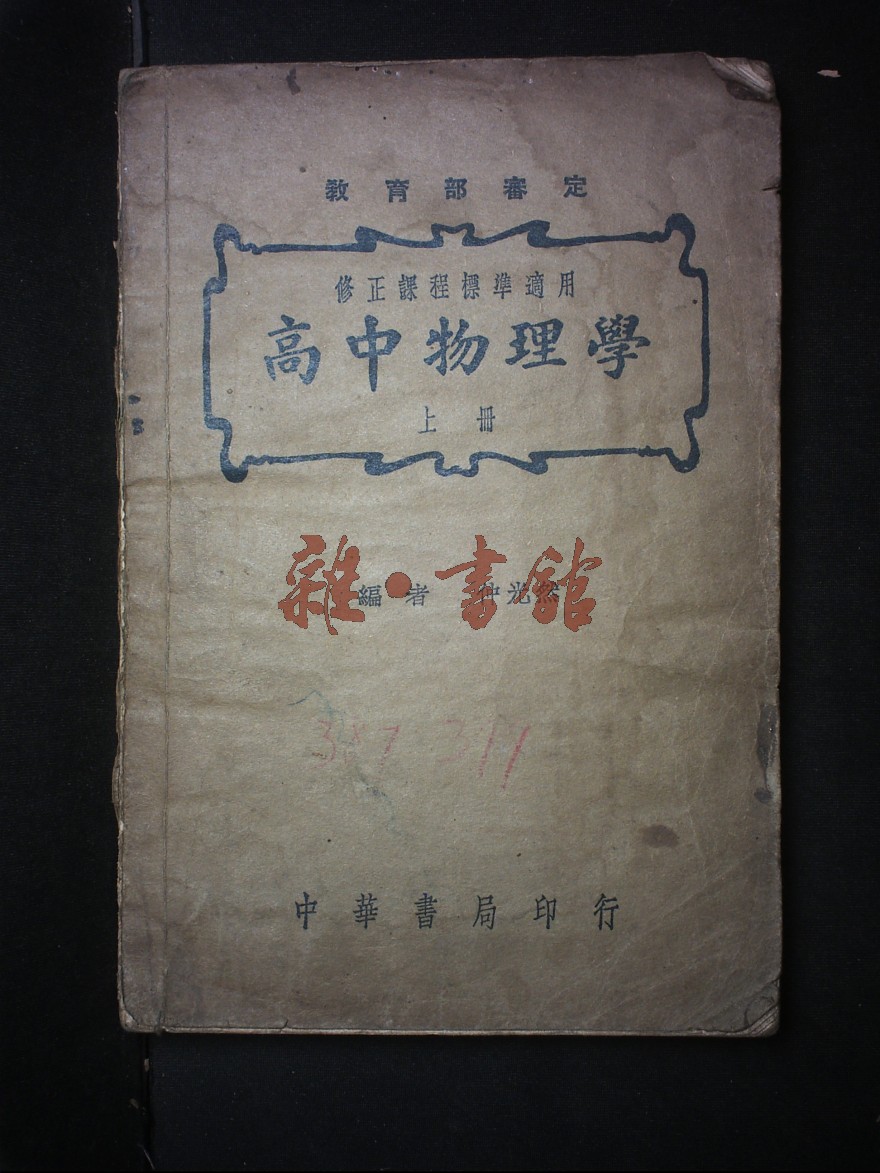 教育部審定
修正課程標準適用
高中物理學
上冊
編者 仲光然
雜·書館
387 311
中華書局印行